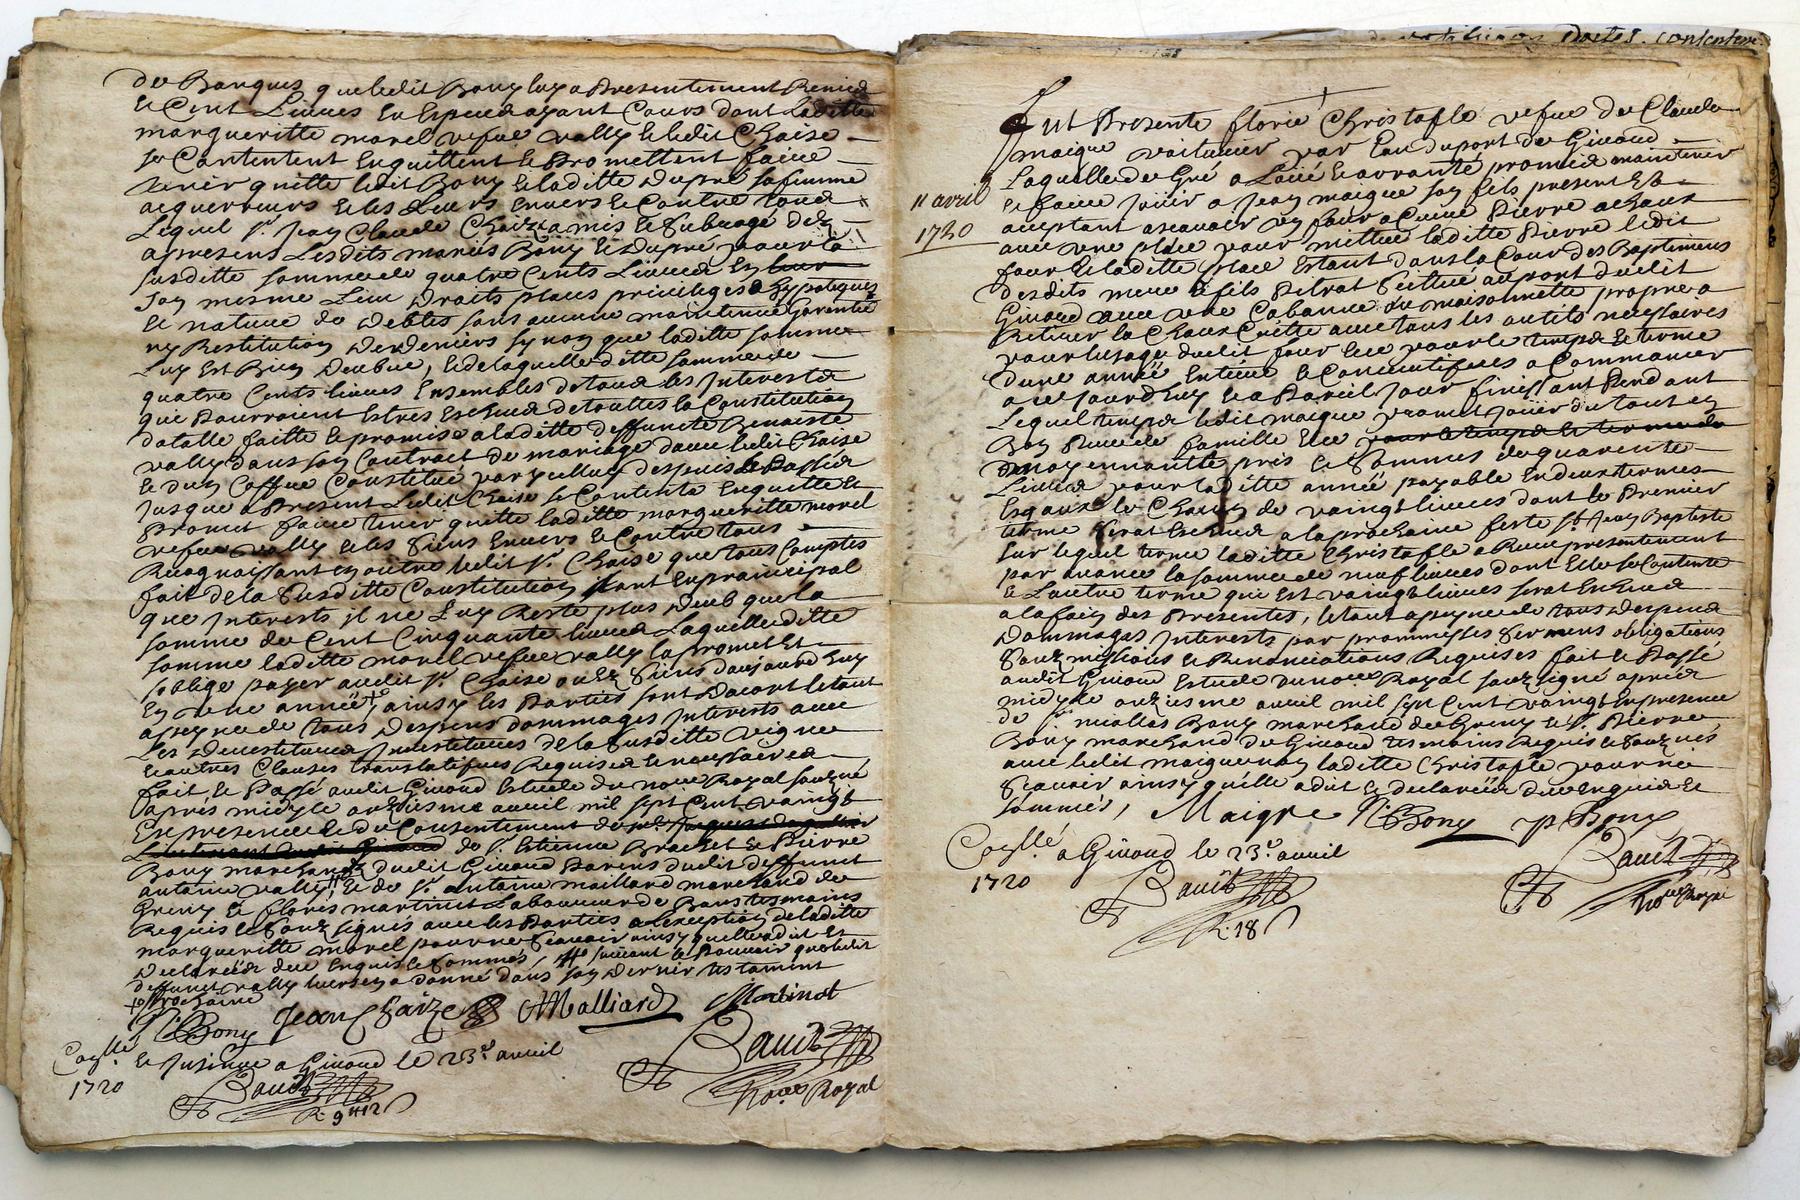 de Banques que ledit Bony luy a Presentement Remis
et Cent Livres En Espece ayant Cours dont laditte
margueritte morel vefue vally et ledit Chaise
se Contentent Enquittent et Promettent faire
tenir quitte ledit Bony et laditte Dupré sa femme
acquereurs et les Leurs Envers et Contre tous
Lequel Sr. Jean Claude Chaize a mis et Subrogé des
apresens Lesdits mariés Bony et Dupré pour la
susditte somme de quatre Cents Livres En leur
son mesme Lieu Droits places privileges hypoteques
et nature de Debtes sans aucune maintenue Garentie
ny Restitution De Deniers sy non que laditte somme
Luy Est Bien Deubue, et de laquelle ditte somme de
quatre Cents livres Ensembles de tous les Interests
qui Pourroient Estres Escheus de touttes la Constitution
datalle faitte et promise a laditte deffuncte Benoiste
vally dans son Contract de mariage d'avec ledit Chaise
et d'un Coffre Constitué par icelluy despuis le Passée
Jusque a Present Ledit Chaise se Contente Enquitte et
Promet faire tenir quitte laditte margueritte morel
vefue vally et les Siens Envers et Contre tous
Recognoissant En outre ledit Sr. Chaise que tous Comptes
fait de la Susditte Constitution tant En principal
que Interests il ne Luy Reste plus Deub que la
somme de Cent Cinquante livres Laquelle ditte
somme laditte morel vefue vally la promet Et
s'oblige payer audit Sr. Chaise ou es Siens daujourd'huy
En une année, ainsy les Parties sont Dacort le tout
a peyne de tous Despens dommages Interests avec
Les Devestitures Investitures de la Susditte vigne
et autres Clauses translatifues Requises et necessaires
fait et Passé audit Givord Estude du noire Royal soubzné
aprés midy le onziesme avril mil sept Cent vaingt
En presence et du Consentement de me. Jacques
Lieutenant audit Givord de Sr. Etienne Brachet et Pierre
Bony marchands dudit Givord Parens dudit deffunct
antoine vally, et de Sr. antoine maillard marchand de
Greny et floris martinet Laboureur de Bans tesmoins
Requis et Soubz signés avec les Parties a lexception de laditte
margueritte morel pour ne Scavoir ainsy quelle a dit Et
Declarée de ce Enquis et Sommés, suivant le Pouvoir que ledit
deffunct vally luy en a donné dans son Dernier testament
prochaine
N. Bony Jean Chaize AMalliard Martinet
Coqllé et Insinué a Givord le 23e. avril
1720
Bauit
R. 9ll 12s
Bauit
Noire Royal
Fut Presente florie Christofle vefue de Claude
maigre voiturier par Eau du port de Givord
Laquelle de Gré a Loüé et arranté promis maintenir
11 avril
et faire joüir a Jean maigre son fils present Et
acceptant ascavoir un four a Cuire Pierre a chaux
1720
avec une place pour mettre laditte Pierre ledit
four et laditte place Estant dans la Cour des Baptimens
desdits mere et fils Petrat Scittué au port dudit
Givord avec une Cabanne ou maisonnette propre a
Retirer la Chaux Cuitte avec tous les outils necessaires
pour lusage dudit four Et ce pour le temps et terme
d'une année Entiere et Consecutifues a Commancer
a ce jourd'huy Et a Pareil Jour finissant Pendant
Lequel temps ledit maigre promet joüir du tout en
Bon Pere de famille Et ce pour le temps et terme de
moyennant le pris et Sommes de quarente
Livres pour laditte année payable En deux termes
Esgaux le Chacun de vaingt livres dont le Premier
terme Serat Escheu a la prochaine feste St. Jean Baptiste
sur lequel terme laditte Christofle a Receu presentement
par avance la somme de neuf livres dont Elle se Contente
et Lautre terme qui est vaingt livres serat Escheu
a la fain des Presentes, le tout a peyne de tous Despens
Dommages Interests par prommesses Sermens obligations
Soubzmissions et Renonciations Requises fait et Passé
audit Givord Estude du noire Royal soubzsigné apréz
midy le onziesme avril mil sept Cent vaingt En presence
de Sr. nicollas Bony marchand de Greny et Sr. Pierre
Bony marchand de Givord tesmoins Requis et Soubznés
avec ledit maigre non laditte Christofle pour ne
Scavoir ainsy quelle a dit et declarée de ce Enquis et
Sommés, Maigre N. Bony P Bony
Coqllé a Givord le 23e. avril
1720
Bauit
R. 18s
Bauit
Noire Royal